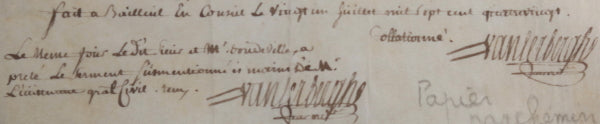 fait a Bailleul En Conseil Le Vingt un Juillet mil sept cent quatrevingt.
Collationné.
vanderberghe
Le Meme jour Le Dit Sieur et Mr. a
preté Le Serment Susmentionné es mains De Mr.
Lieutenant gnāl Civil.
vanderberghe
Papier
parchemin